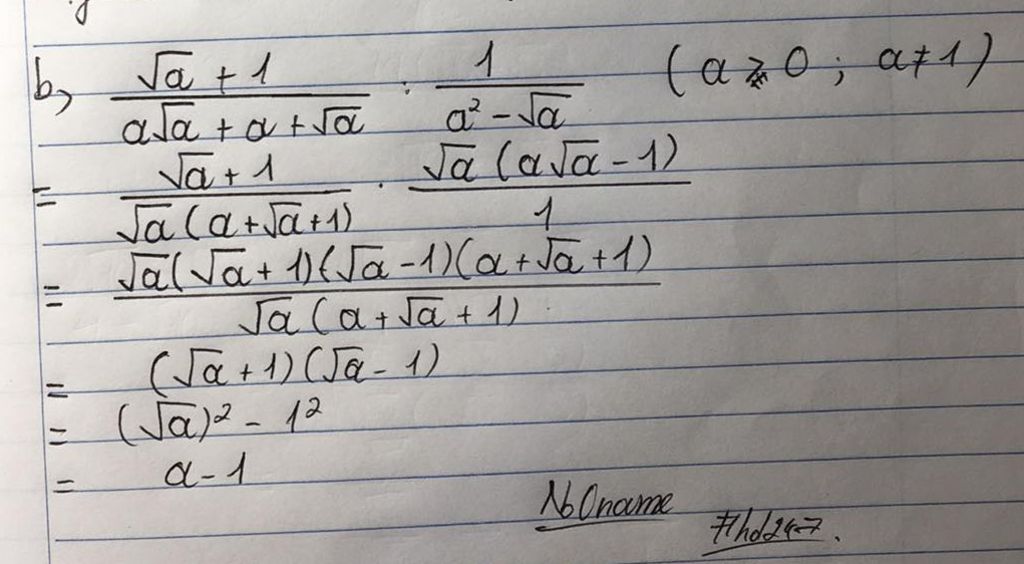 b, (√a + 1)/(a√a + a + √a) : 1/(a² - √a) (a ≥ 0 ; a ≠ 1)
= (√a + 1)/(√a (a + √a + 1)) . (√a (a√a - 1))/1
= (√a (√a + 1) (√a - 1) (a + √a + 1))/(√a (a + √a + 1))
= (√a + 1) (√a - 1)
= (√a)² - 1²
= a - 1
NbOname
#hd247.